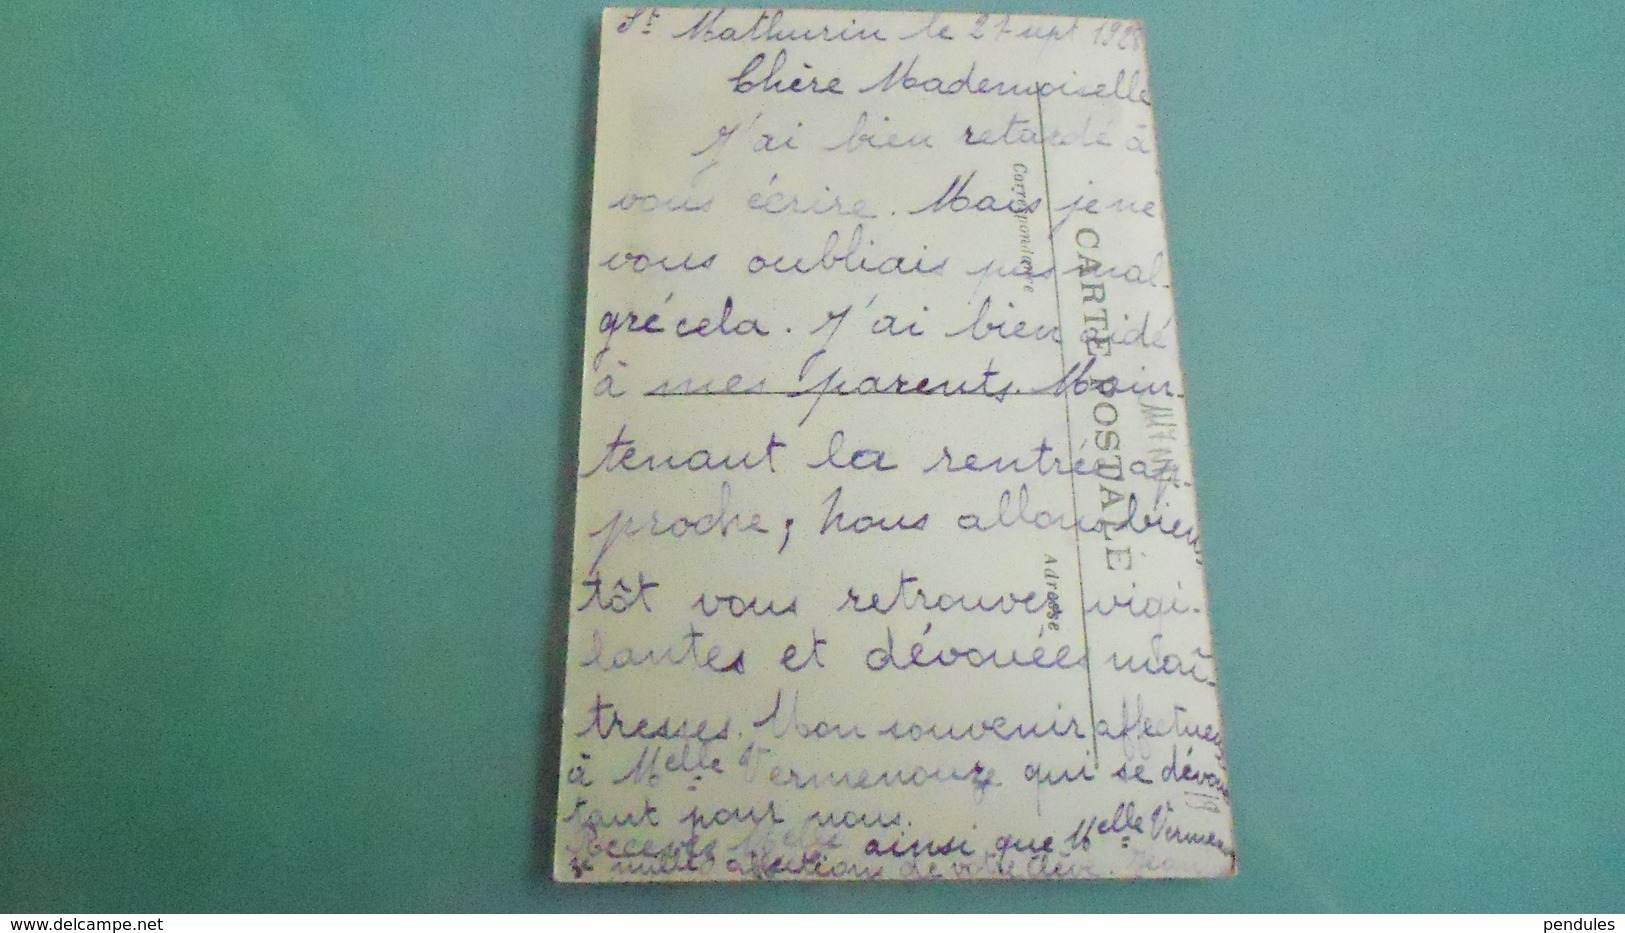 St Mathurin le 27 sept 1928
Chère Mademoiselle
J'ai bien retardé à
vous écrire. Mais je ne
vous oubliais pas mal-
gré cela. J'ai bien aidé
à mes parents. Main-
tenant la rentrée ap-
proche, nous allons bien
tôt vous retrouver vigi-
lantes et dévouées maî-
tresses. Mon souvenir affectueux
à Melle Vermenouze qui se dévoue
tant pour nous.
Recevez Melle ainsi que Melle Vermenou
ze mille affections de votre élève.
Correspondance
CARTE POSTALE
Adresse
www.delcampe.net
pendules